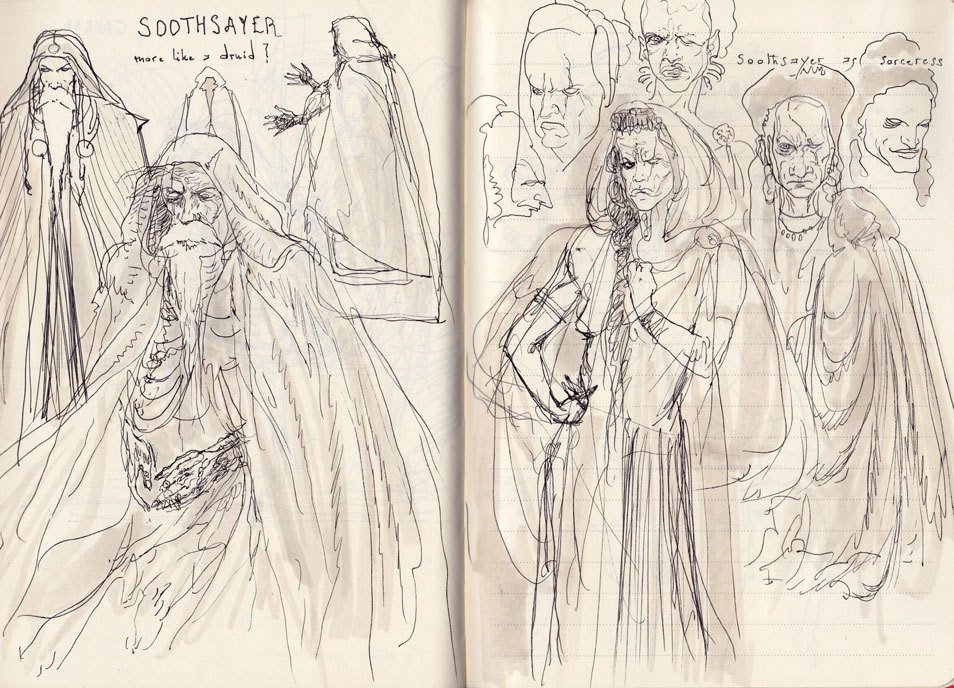 SOOTHSAYER
more like a druid?
Soothsayer as Sorceress